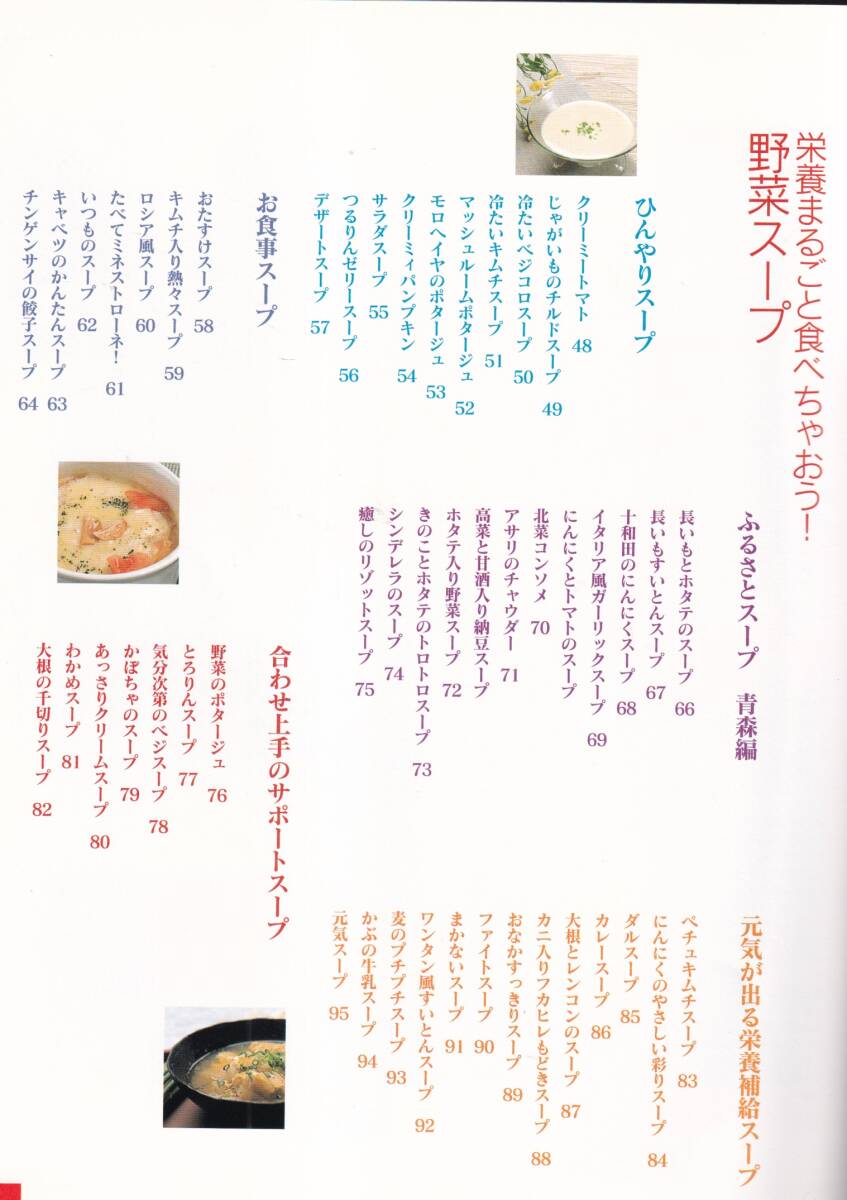 栄養まるごと食べちゃおう!
野菜スープ
ひんやりスープ
クリーミートマト 48
じゃがいものチルドスープ 49
冷たいベジコロスープ 50
冷たいキムチスープ 51
マッシュルームポタージュ 52
モロヘイヤのポタージュ 53
クリーミィパンプキン 54
サラダスープ 55
つるりんゼリースープ 56
デザートスープ 57
お食事スープ
おたすけスープ 58
キムチ入り熱々スープ 59
ロシア風スープ 60
たべてミネストローネ! 61
いつものスープ 62
キャベツのかんたんスープ 63
チンゲンサイの餃子スープ 64
ふるさとスープ 青森編
長いもとホタテのスープ 66
長いもすいとんスープ 67
十和田のにんにくスープ 68
イタリア風ガーリックスープ 69
にんにくとトマトのスープ
北菜コンソメ 70
アサリのチャウダー 71
高菜と甘酒入り納豆スープ
ホタテ入り野菜スープ 72
きのことホタテのトロトロスープ 73
シンデレラのスープ 74
癒しのリゾットスープ 75
合わせ上手のサポートスープ
野菜のポタージュ 76
とろりんスープ 77
気分次第のベジスープ 78
かぼちゃのスープ 79
あっさりクリームスープ 80
わかめスープ 81
大根の千切りスープ 82
元気が出る栄養補給スープ
ペチュキムチスープ 83
にんにくのやさしい彩りスープ 84
ダルスープ 85
カレースープ 86
大根とレンコンのスープ 87
カニ入りフカヒレもどきスープ 88
おなかすっきりスープ 89
ファイトスープ 90
まかないスープ 91
ワンタン風すいとんスープ 92
麦のプチプチスープ 93
かぶの牛乳スープ 94
元気スープ 95